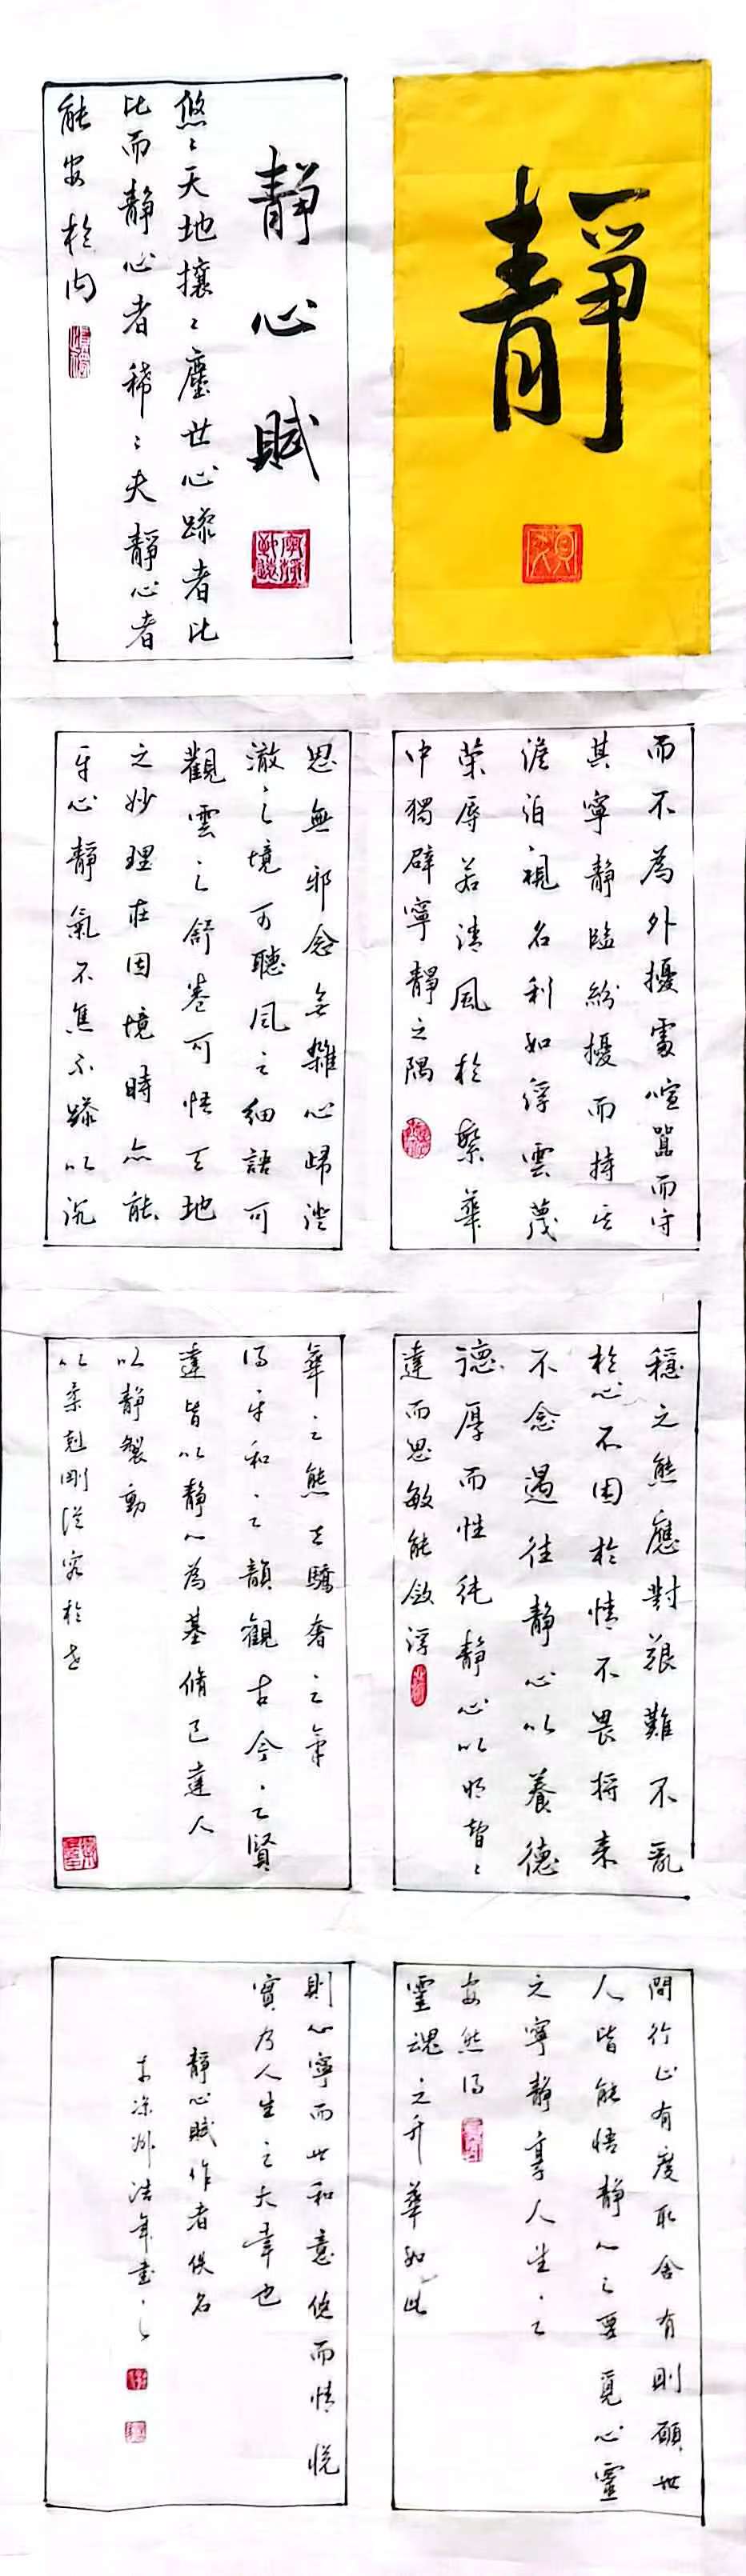 靜
靜心賦
悠悠天地攘攘塵世心躁者比
比而靜心者稀稀夫靜心者
能安於內
而不為外擾處喧囂而守
其寧靜臨紛擾而持其
澹泊視名利如浮雲蔑
榮辱若清風於繁華
中獨辟寧靜之隅
思無邪念無雜心歸澄
澈之境可聽風之細語可
觀雲之舒卷可悟天地
之妙理在困境時亦能
平心靜氣不焦不躁以沉
穩之態應對艱難不亂
於心不困於情不畏將來
不念過往靜心以養德
德厚而性純靜心以明智智
達而思敏能斂浮
華之態去驕奢之氣
得平和之韻觀古今之賢
達皆以靜心為基脩己達人
以靜製動
以柔剋剛從容於世
間行止有度取舍有則願世
人皆能悟靜心之要覓心靈
之寧靜享人生之
安然得
靈魂之升華如此
則心寧而世和意悠而情悅
實乃人生之大幸也
靜心賦作者佚名
浩年書之